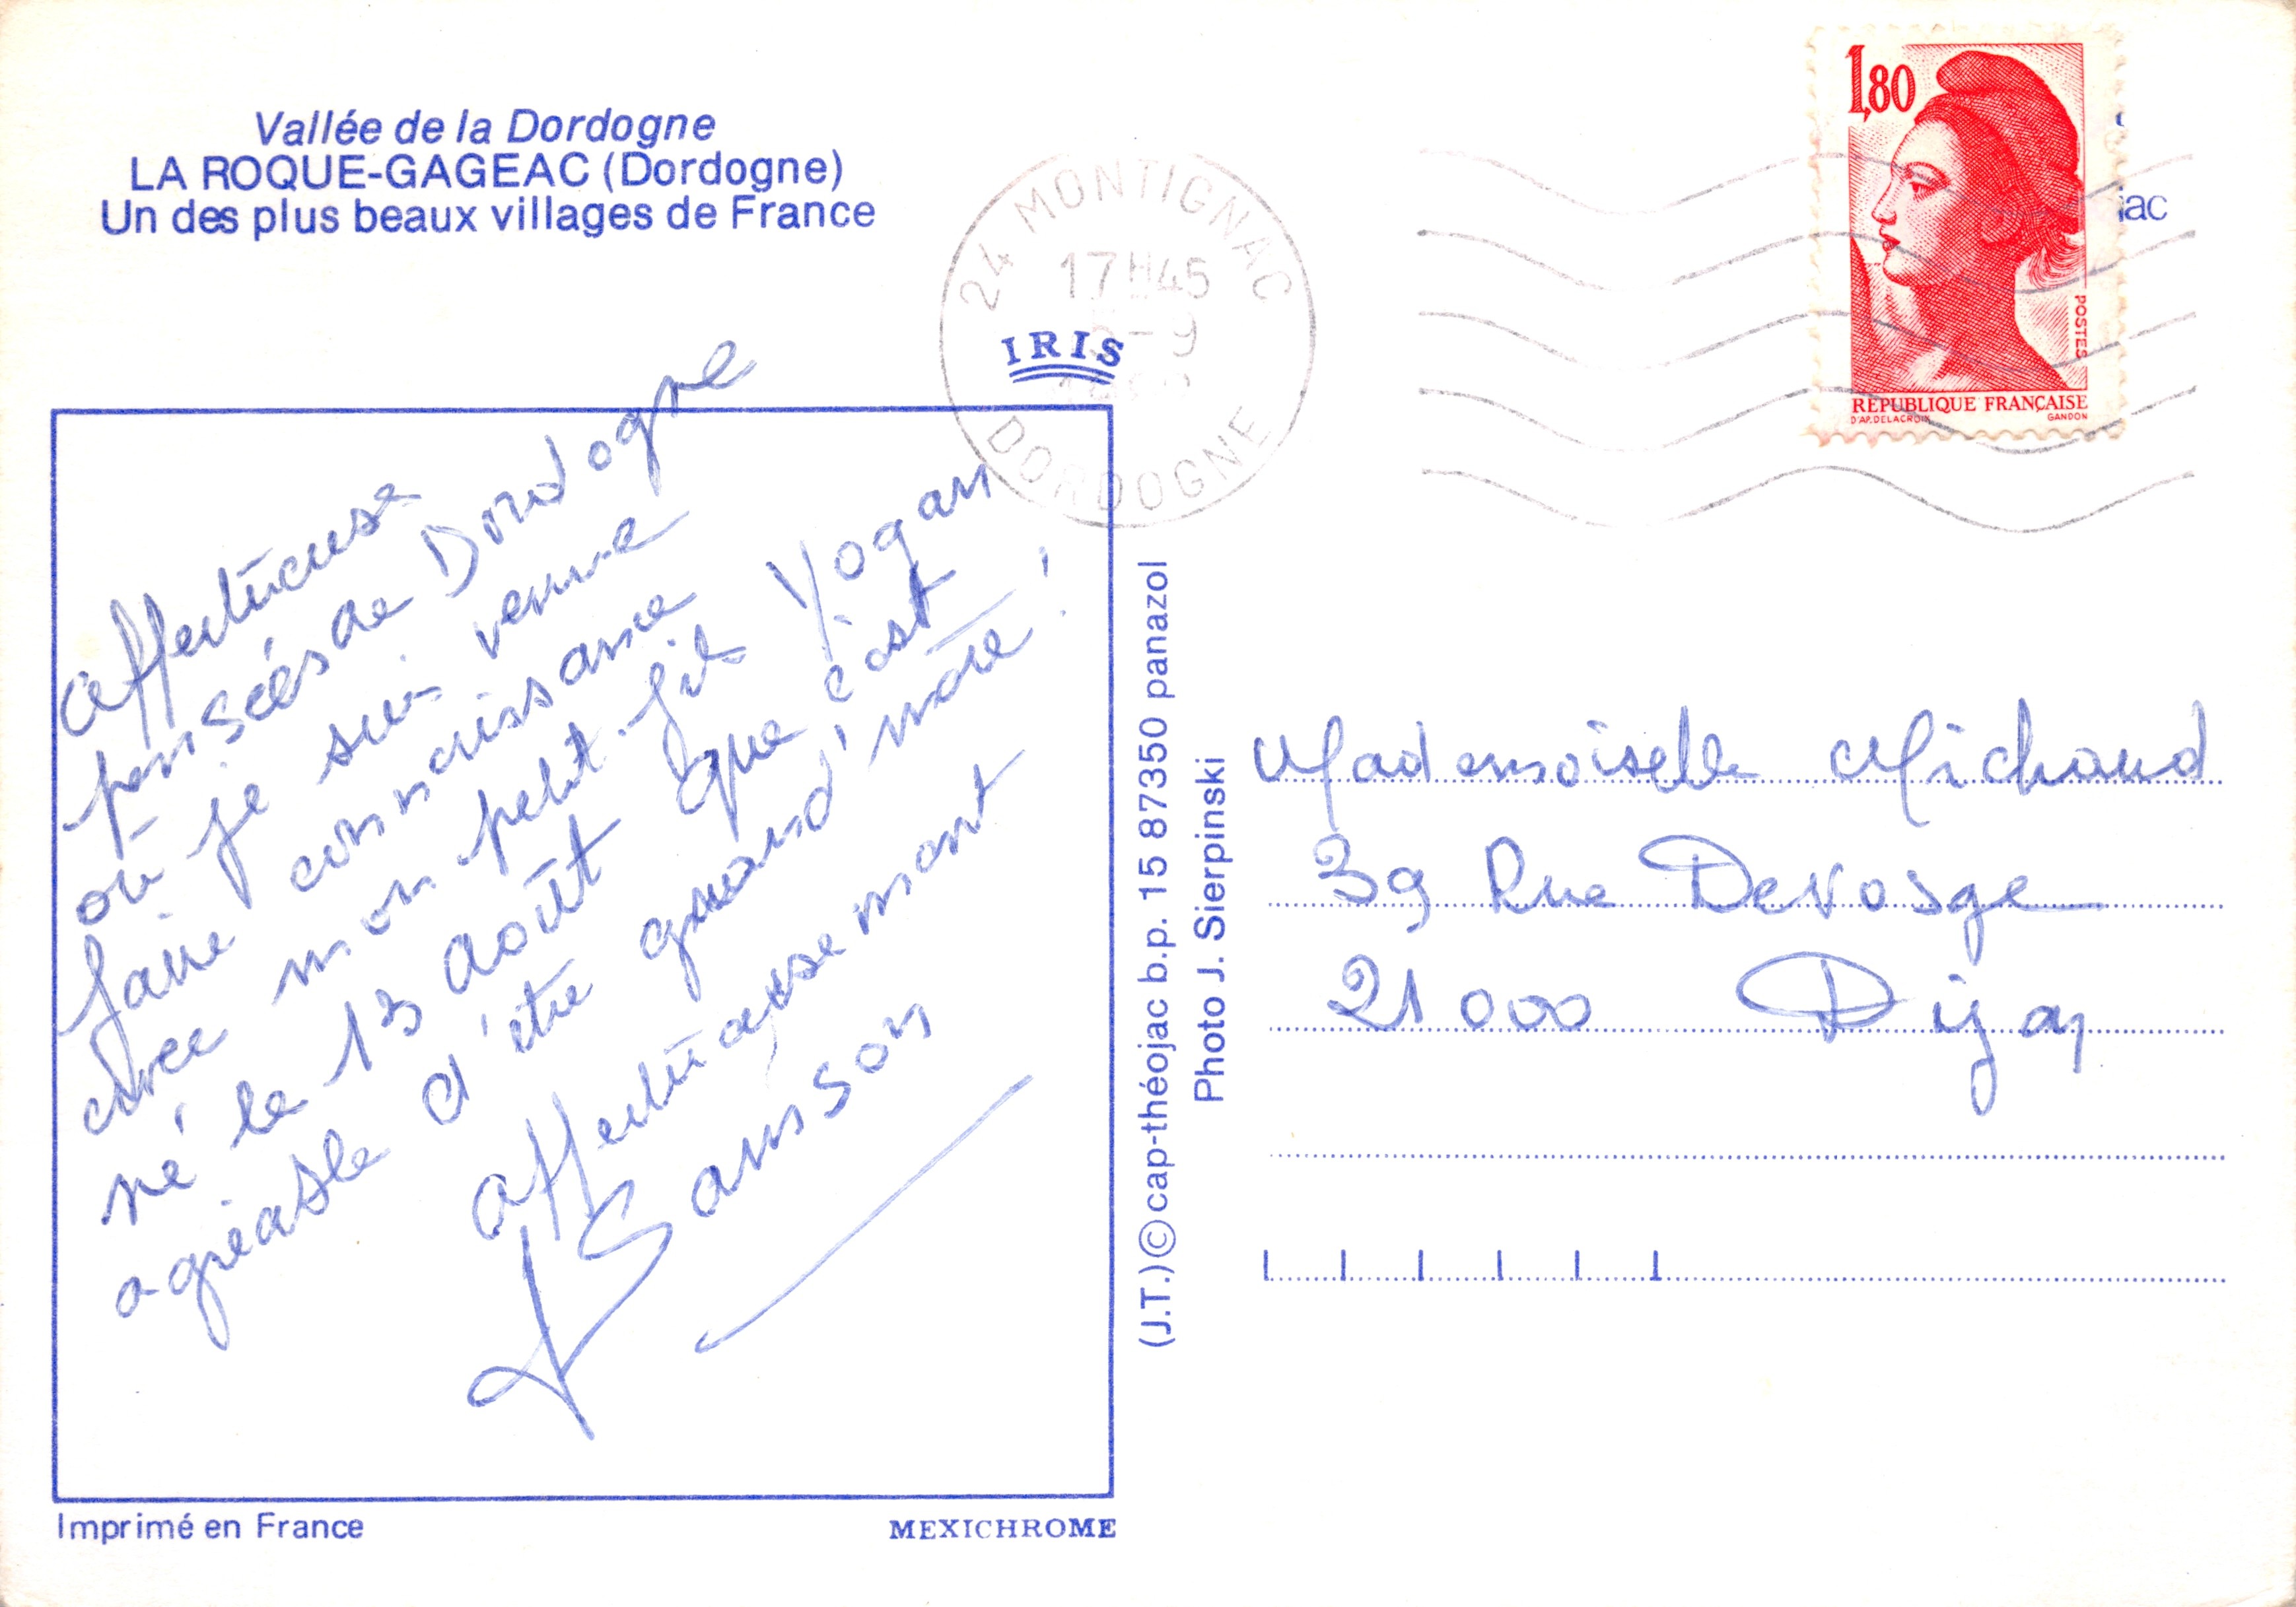 Vallée de la Dordogne
LA ROQUE-GAGEAC (Dordogne)
Un des plus beaux villages de France
24 MONTIGNAC
17H45
-9
DORDOGNE
IRIS
1,80
POSTES
REPUBLIQUE FRANÇAISE
D'AP. DELACROIX GANDON
jac
Affectueuse
pensées de Dordogne
où je suis venue
faire connaissance
avec mon petit-fils Yogan
né le 13 août que c'est
agréable d'être grand'mère !
Affectueusement
Sanson
(J.T.) © cap-théojac b.p. 15 87350 panazol
Photo J. Sierpinski
Mademoiselle Michaud
39 Rue Devosge
21000 Dijon
Imprimé en France
MEXICHROME